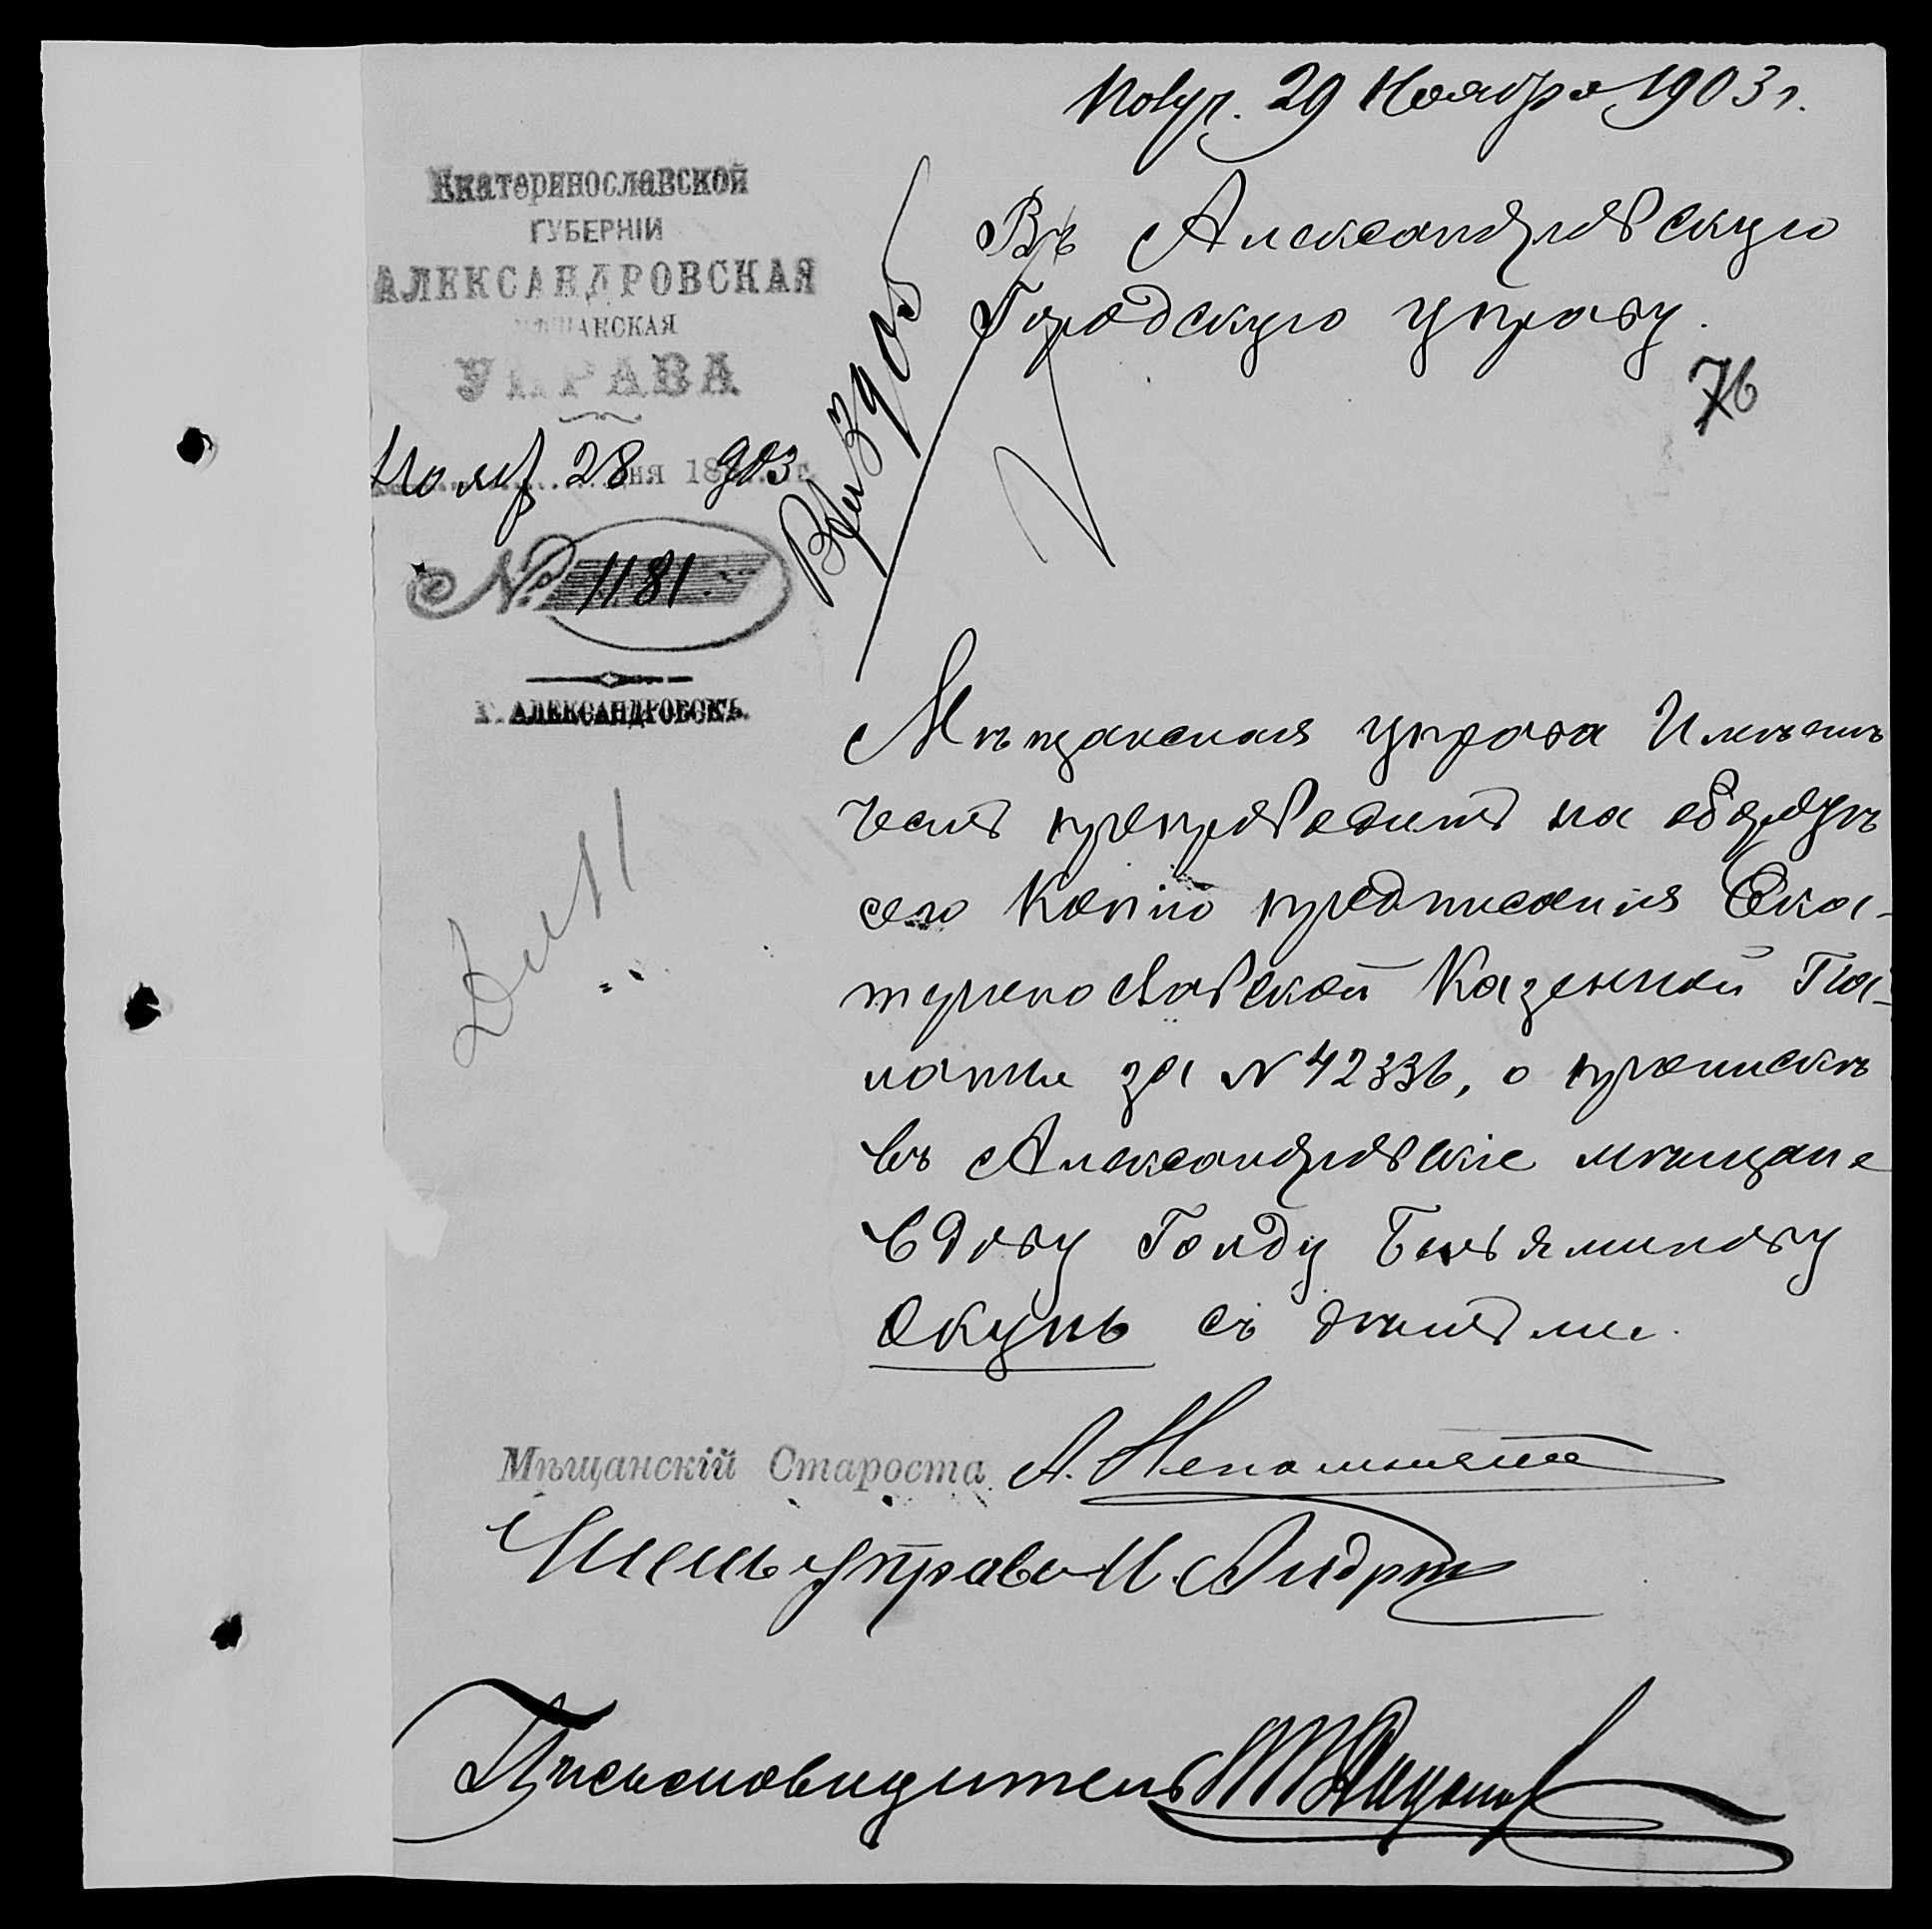 Получ. 29 Ноября 1903 г.
Екатеринославской
ГУБЕРНІИ
АЛЕКСАНДРОВСКАЯ
МѢЩАНСКАЯ
УПРАВА
Нояб 28 дня 1903 г.
№ 1181.
Г. АЛЕКСАНДРОВСКЪ.
Въ Александровскую
Городскую управу.
76
Мѣщанская управа Имѣетъ
честь препроводить на обороте
сего копію предписанія Ека-
теринославской Казенной Па-
латы за № 42336, о припискѣ
въ Александровскіе мѣщане
вдову Голду Беньяминову
Окунь съ дѣтьми.
Мѣщанскій Староста А. Непомнящій
Членъ Управы
Письмоводитель